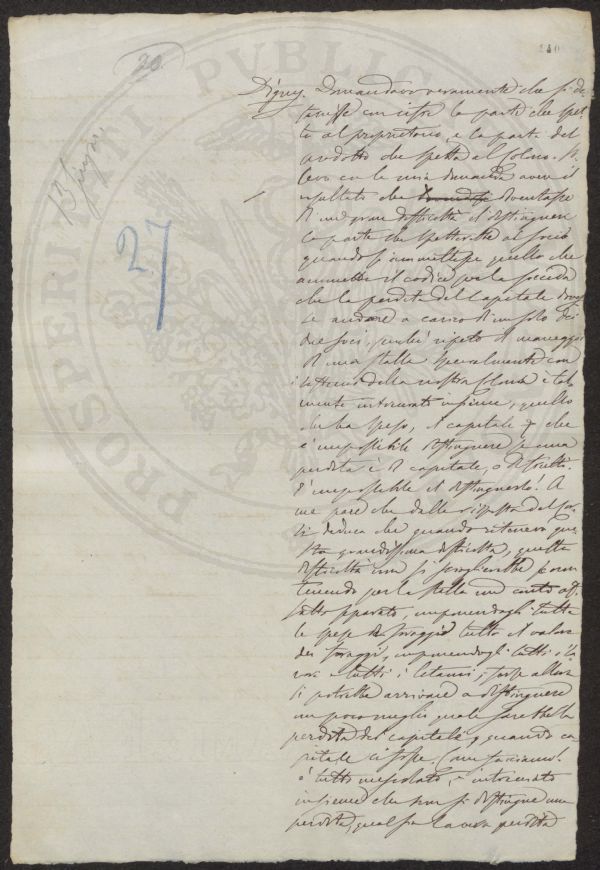 20.
240
13 Giugno
27
Digny. Domandavo veramente che si de
tasse con cifre la parte che spet
ta al proprietario, e la parte del
prodotto che spetta al colono.
con la mia domanda aveva il
resultato che diventasse
di una gran difficoltà il distinguere
la parte che spetterebbe al socio
quando s'ammettesse quello che
ammette il codice per la soccida
che la perdita del capitale doves
se andare a carico di un solo dei
due soci, perché ripeto il maneggio
di una stalla specialmente con
il sistema della nostra colonia è tal
mente intrecciato insieme, quello
che ha speso, il capitale che
è impossibile distinguere se una
perdita è di capitale, o di frutti.
È impossibile il distinguerlo! A
me pare che dalla risposta del
si deduca che quando riteneva que
sta grandissima difficoltà, questa
difficoltà non si scioglierebbe se non
tenendo per la stalla un conto af
fatto separato, imponendogli tutte
le spese di foraggio tutto il valore
dei foraggi, imponendogli tutti i la
vori e tutti i letami, forse allora
si potrebbe arrivare a distinguere
un poco meglio quale sarebbe la
perdita del capitale, quando ca
pitale ci fosse. Come facciamo
è tutto mescolato, e intrecciato
insieme che non si distingue una
perdita, qual sia la vera perdita
PROSPERITATI PVBLIC